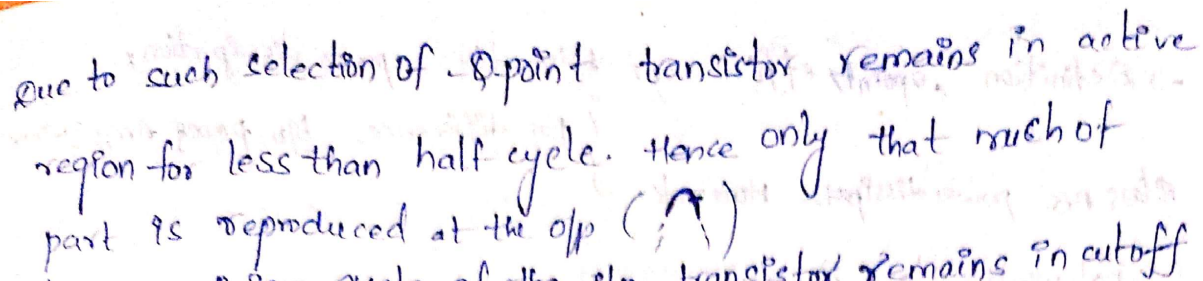 Due to such selection of Q-point transistor remains in active
region for less than half cycle. Hence only that much of
part is reproduced at the o/p ( )
of the transistor remains in cutoff